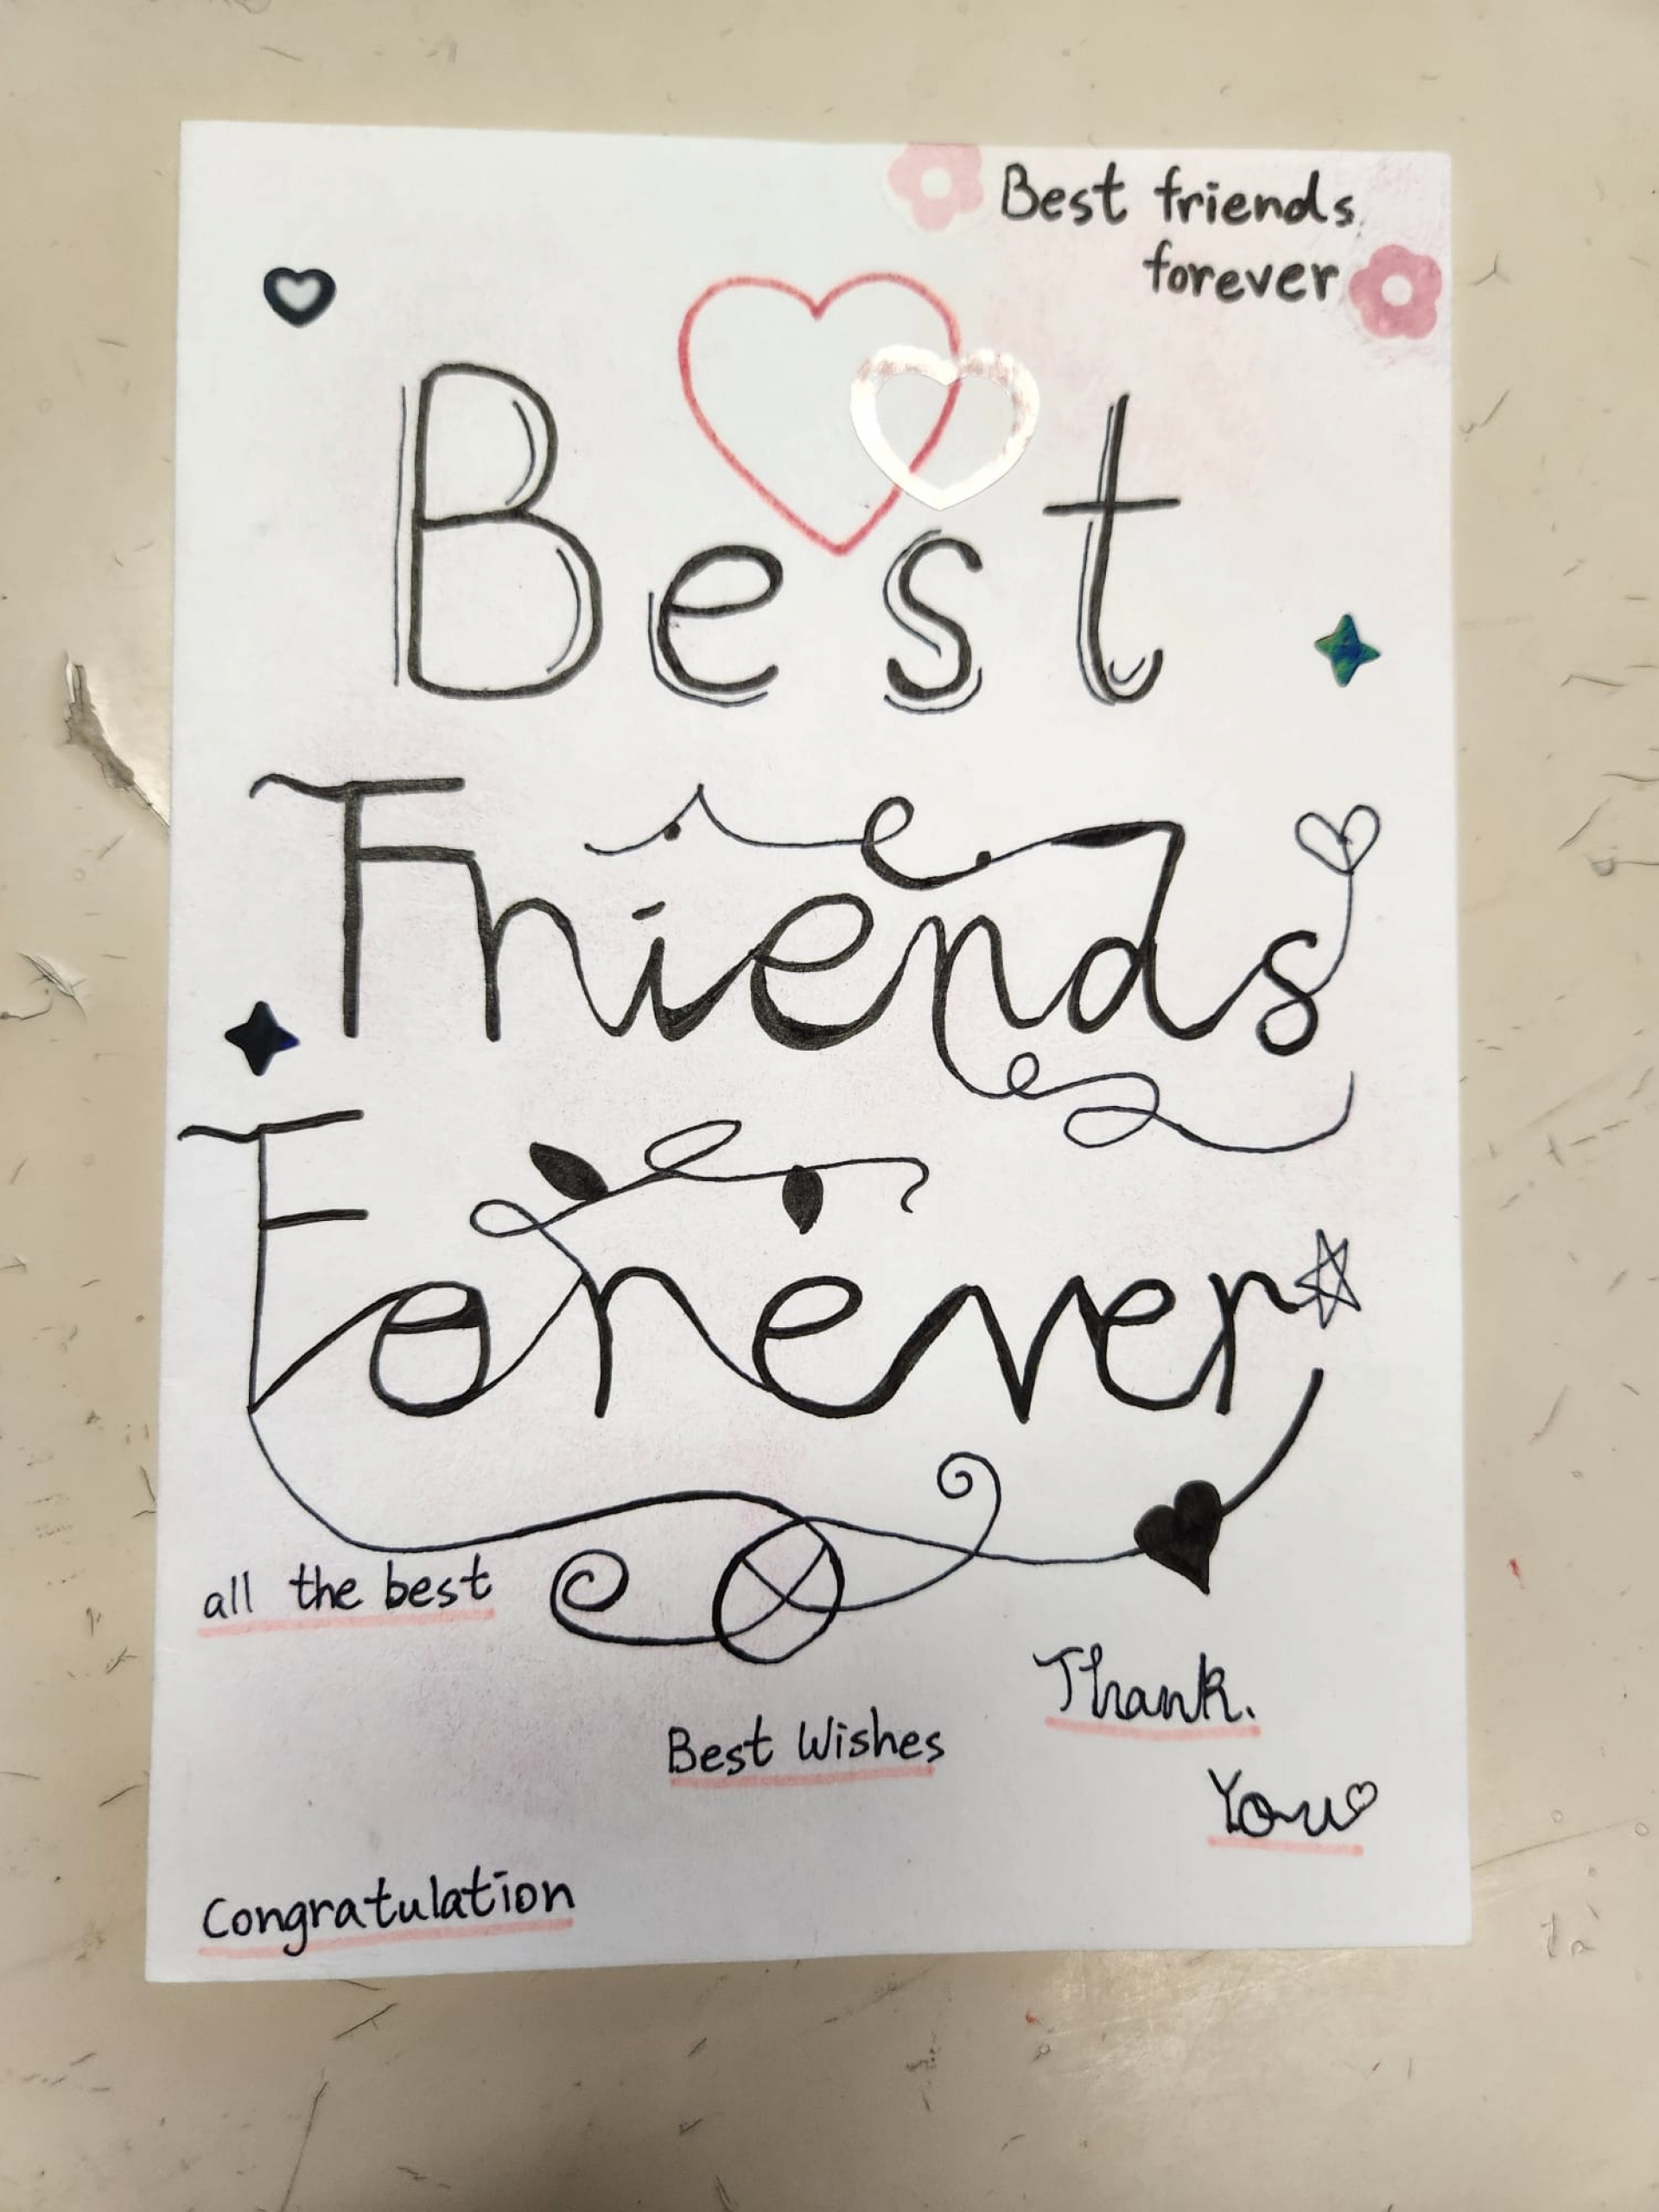 Best friends
forever
Best
Friends
Forever
all the best
Thank.
Best Wishes
You
Congratulation